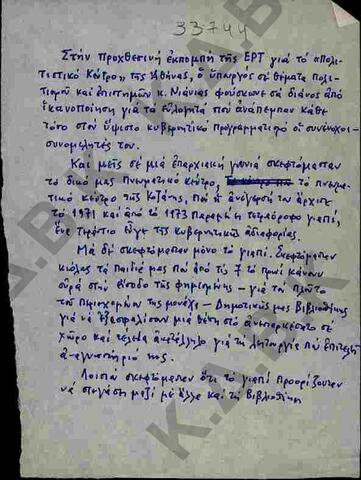 33744
Στήν προχθεσινή ἐκπομπή τῆς ΕΡΤ γιά τό «Πολι-
τιστικό Κέντρο» τῆς Ἀθήνας, ὁ ὑπουργός σέ θέματα πολι-
τισμοῦ καί ἐπιστημῶν κ. Νιάνιας φούσκωνε σά διάνος ἀπό
ἱκανοποίηση γιά τά εὐλογητά πού ἀνάπεμπαν κάθε
τόσο στόν ὕψιστο κυβερνητικό προγραμματισμό οἱ συνένοχοι-
συνομιλητές του.
Καί μεῖς σέ μιά ἐπαρχιακή γωνιά σκεφτόμασταν
τό δικό μας Πνευματικό κέντρο, τό πνευμα-
τικό κέντρο τῆς Κοζάνης, πού ἡ ἀνέγερσή του ἄρχισε
τό 1971 καί ἀπό τό 1973 παραμένει τετραόροφο γιαπί,
ἕνα τεράστιο εὖγε τῆς κυβερνητικῆς ἀδιαφορίας.
Μά δέ σκεφτόμασταν μόνο τό γιαπί. Σκεφτόμασταν
κιόλας τά παιδιά μας πού ἀπό τίς 7 τό πρωί κάνουν
οὐρά στήν εἴσοδο τῆς φημισμένης - γιά τόν πλοῦτο
τῶν περιεχομένων της μονάχα - Δημοτικῆς μας Βιβλιοθήκης
γιά νά ἐξασφαλίσουν μιά θέση στό ἀνεπαρκέστατο σέ
χῶρο καί τελείως ἀκατάλληλο γιά τή λειτουργία πού ἐπιτελεῖ
ἀναγνωστήριό της.
Λοιπόν σκεφτόμασταν ὅτι τό γιαπί προορίζονταν
νά στεγάσῃ μαζί μέ ἄλλα καί τή Βιβλιοθήκη
Κ.Δ.Β.Κ